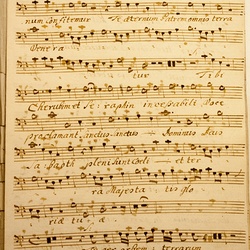 num Confitemur Te æternum Patrem omnis terra
Venera
tur Tibi
Cherubim et Seraphin incessabili Voce
proclamant Sanctus Sanctus Dominus Deus
Sabaoth pleni sunt Coeli et ter
ra Majesta tis glo
riæ tuæ
orbem terrarum